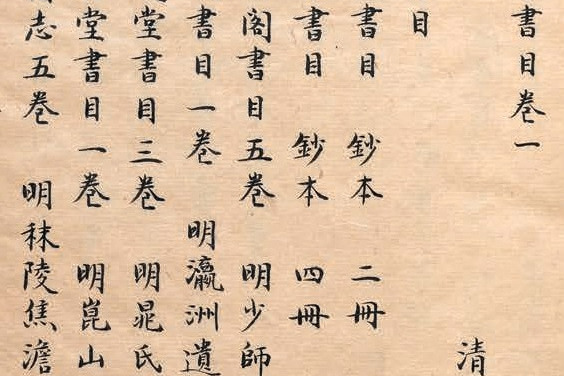 書目卷一
清
目
書目 鈔本 二冊
書目 鈔本 四冊
閣書目五卷 明少師
書目一卷 明瀛洲遺
堂書目三卷 明晁氏
堂書目一卷 明崑山
志五卷 明秣陵焦澹